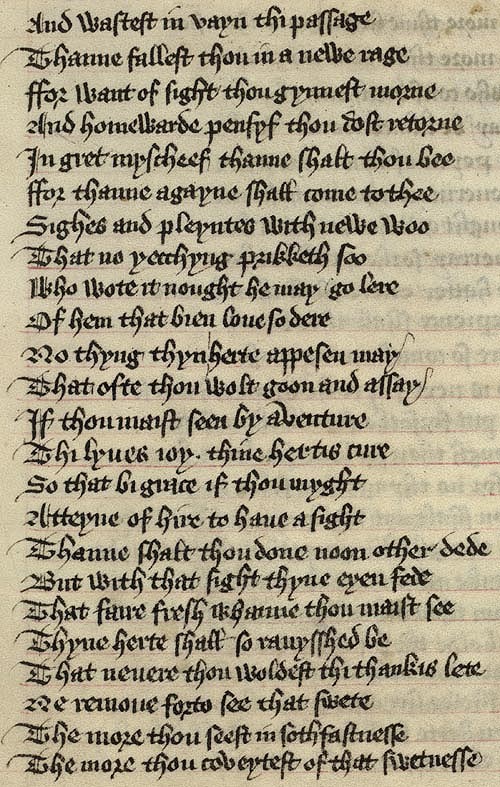 And wastest in vayn thi passage
Thanne fallest thou in a newe rage
ffor want of sight thou gynnest morne
And homewarde pensyf thou dost retorne
In gret myscheef thanne shalt thou bee
ffor thanne agayne shall come to thee
Sighes and pleyntes with newe woo
That no yecchyng prikketh soo
Who wote it nought he may go lere
Of hem that bien loue so dere
No thyng thyn herte appesen may
That ofte thou wolt goon and assay
If thou maist seen by aventure
Thi lyues ioy. thine hertis cure
So that bi grace if thou myght
Atteyne of hire to haue a sight
Thanne shalt thou done noon other dede
But with that sight thyne eyen fede
That faire fresh whanne thou maist see
Thyne herte shall so rauysshed be
That neuere thou woldest thi thankis lete
Ne remoue forto see that swete
The more thou seest in sothfastnesse
The more thou coveytest of that swetnesse